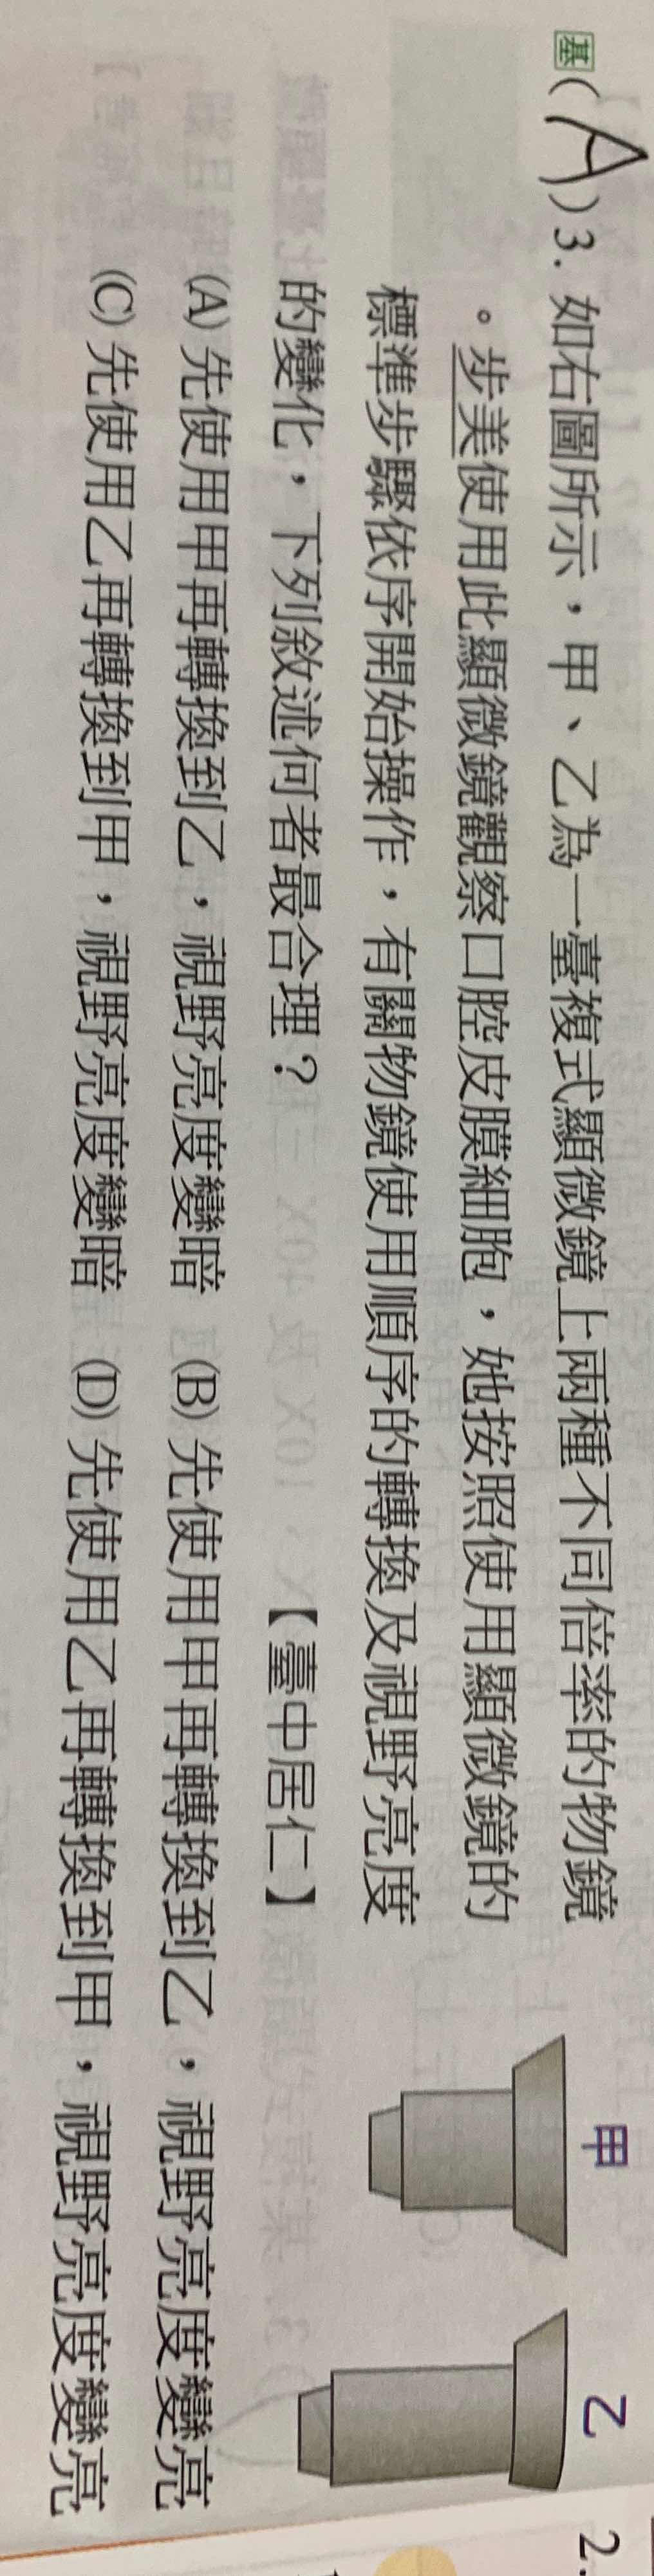 基(A)3. 如右圖所示，甲、乙為一臺複式顯微鏡上兩種不同倍率的物鏡
。步美使用此顯微鏡觀察口腔皮膜細胞，她按照使用顯微鏡的
標準步驟依序開始操作，有關物鏡使用順序的轉換及視野亮度
的變化，下列敘述何者最合理？ 【臺中居仁】
(A) 先使用甲再轉換到乙，視野亮度變暗 (B) 先使用甲再轉換到乙，視野亮度變亮
(C) 先使用乙再轉換到甲，視野亮度變暗 (D) 先使用乙再轉換到甲，視野亮度變亮
甲 乙
2.